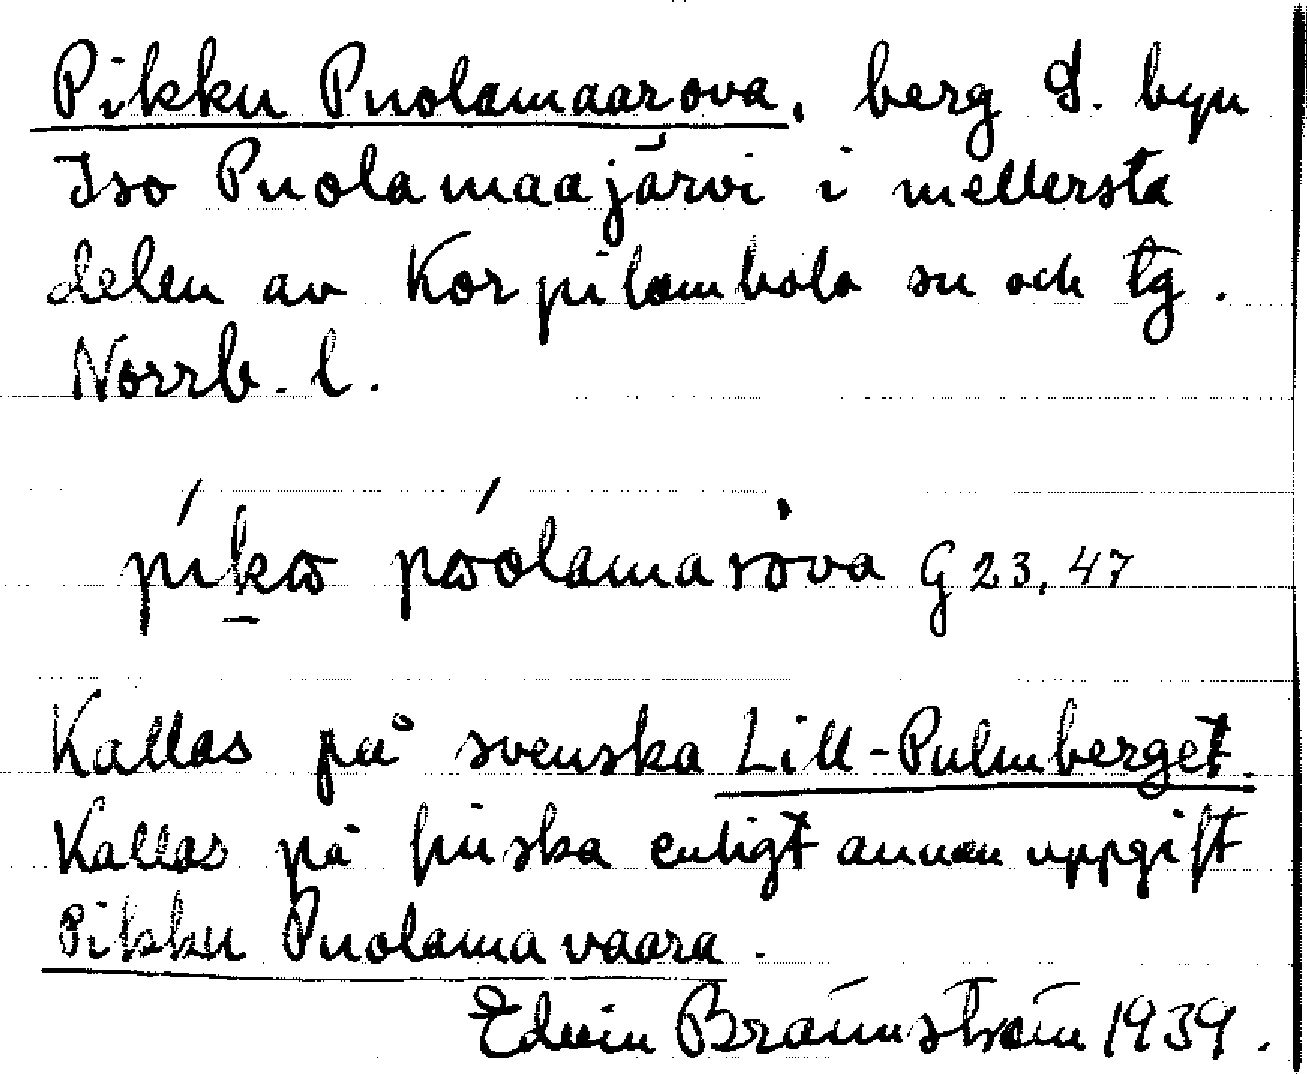 Pikku Puolamaarova, berg S. byn
Iso Puolamaajärvi i mellersta
delen av Korpilombolo sn och tg.
Norrb. l.
píkω pωólamarȯva G 23, 47
Kallas på svenska Lill-Pulmberget.
Kallas på finska enligt annan uppgift
Pikku Puolamavaara.
Edvin Brännström 1939.